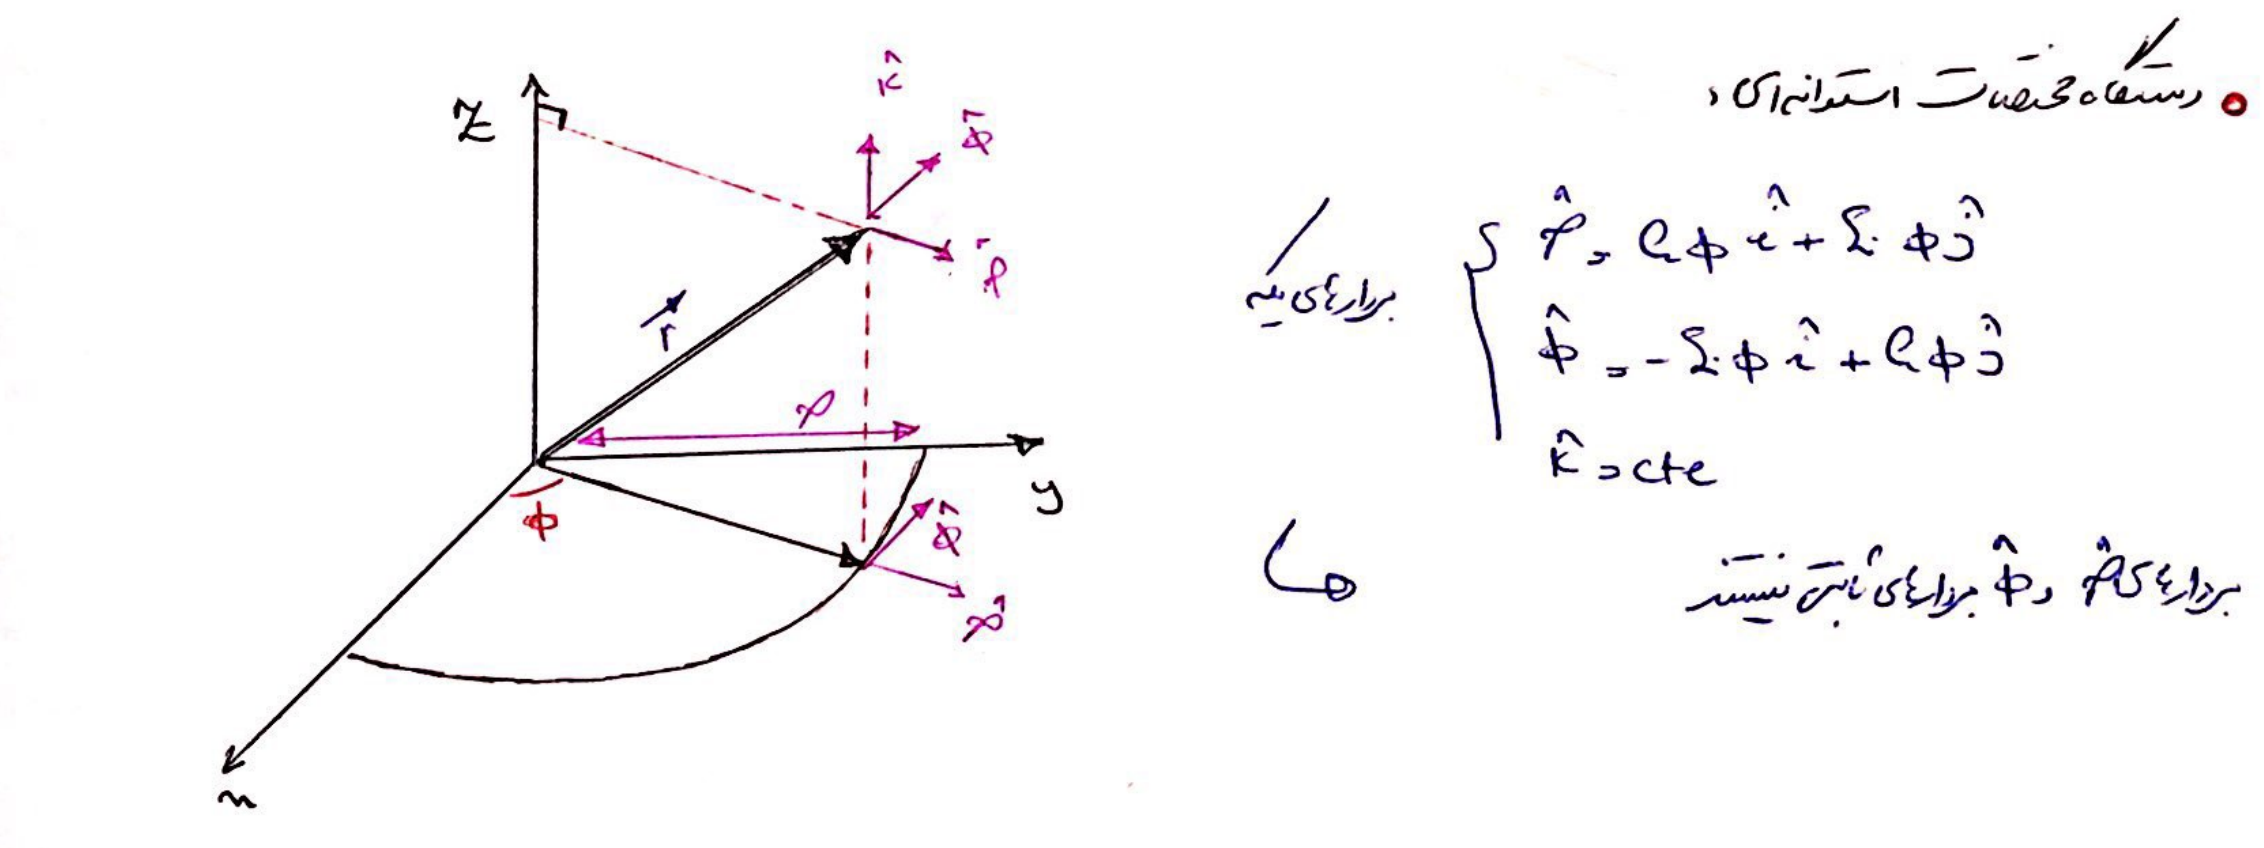 دستگاه مختصات استوانه‌ای :
بردارهای یکه
ρ̂ = Cos φ î + Sin φ ĵ
φ̂ = - Sin φ î + Cos φ ĵ
k̂ = cte
بردارهای ρ̂ و φ̂ بردارهای ثابتی نیستند
z
k̂
φ̂
ρ̂
r⃗
ρ
y
φ
φ̂
ρ̂
x